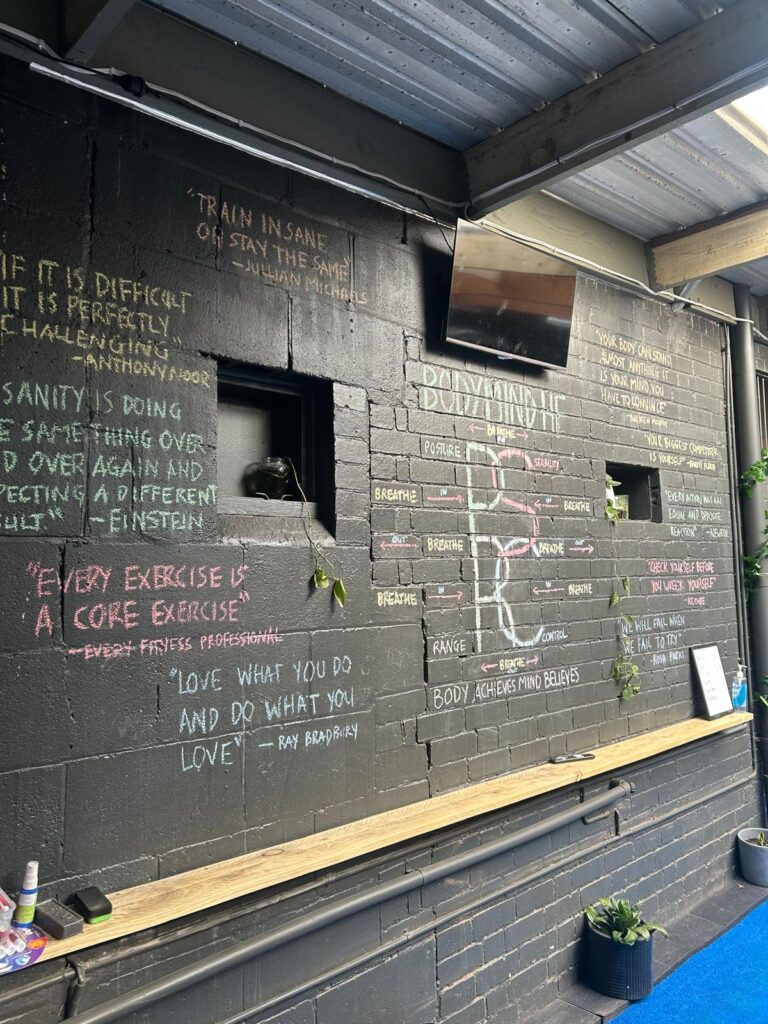 "TRAIN INSANE
OR STAY THE SAME"
-JULLIAN MICHAELS
IF IT IS DIFFICULT
IT IS PERFECTLY
CHALLENGING"
-ANTHONY NOOR
SANITY IS DOING
E SAME THING OVER
D OVER AGAIN AND
PECTING A DIFFERENT
ULT." -EINSTEIN
"EVERY EXERCISE IS
A CORE EXERCISE"
-EVERY FITYESS PROFESSIONAL
"LOVE WHAT YOU DO
AND DO WHAT YOU
LOVE" - RAY BRADBURY
BODYMINDHF
BREATHE
POSTURE
STABILITY
PS
BREATHE IN IN BREATHE
OUT BREATHE BREATHE OUT
RC
BREATHE IN IN BREATHE
RANGE
CONTROL
BREATHE
BODY ACHIEVES MIND BELIEVES
"YOUR BODY CAN STAND
ALMOST ANYTHING IT
IS YOUR MIND YOU
HAVE TO CONVINCE"
"YOUR BIGGEST COMPETITOR
IS YOURSELF"
"EVERY ACTION HAS AN
EQUAL AND OPPOSITE
REACTION" -NEWTON
"CHECK YOURSELF BEFORE
YOU WRECK YOURSELF"
-ICE CUBE
WE WILL FAIL WHEN
WE FAIL TO TRY"
-ROSA PARKS